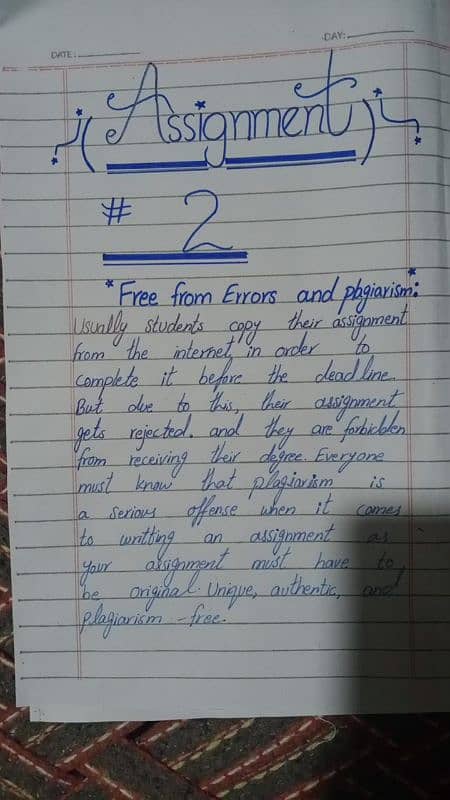 DAY:
DATE:
(Assignment)
# 2
*Free from Errors and plagiarism:*
Usually students copy their assignment
from the internet, in order to
complete it before the deadline.
But due to this, their assignment
gets rejected. and they are forbidden
from receiving their degree. Everyone
must know that plagiarism is
a serious offense when it comes
to writting an assignment as
your assignment must have to
be original. Unique, authentic, and
plagiarism - free.